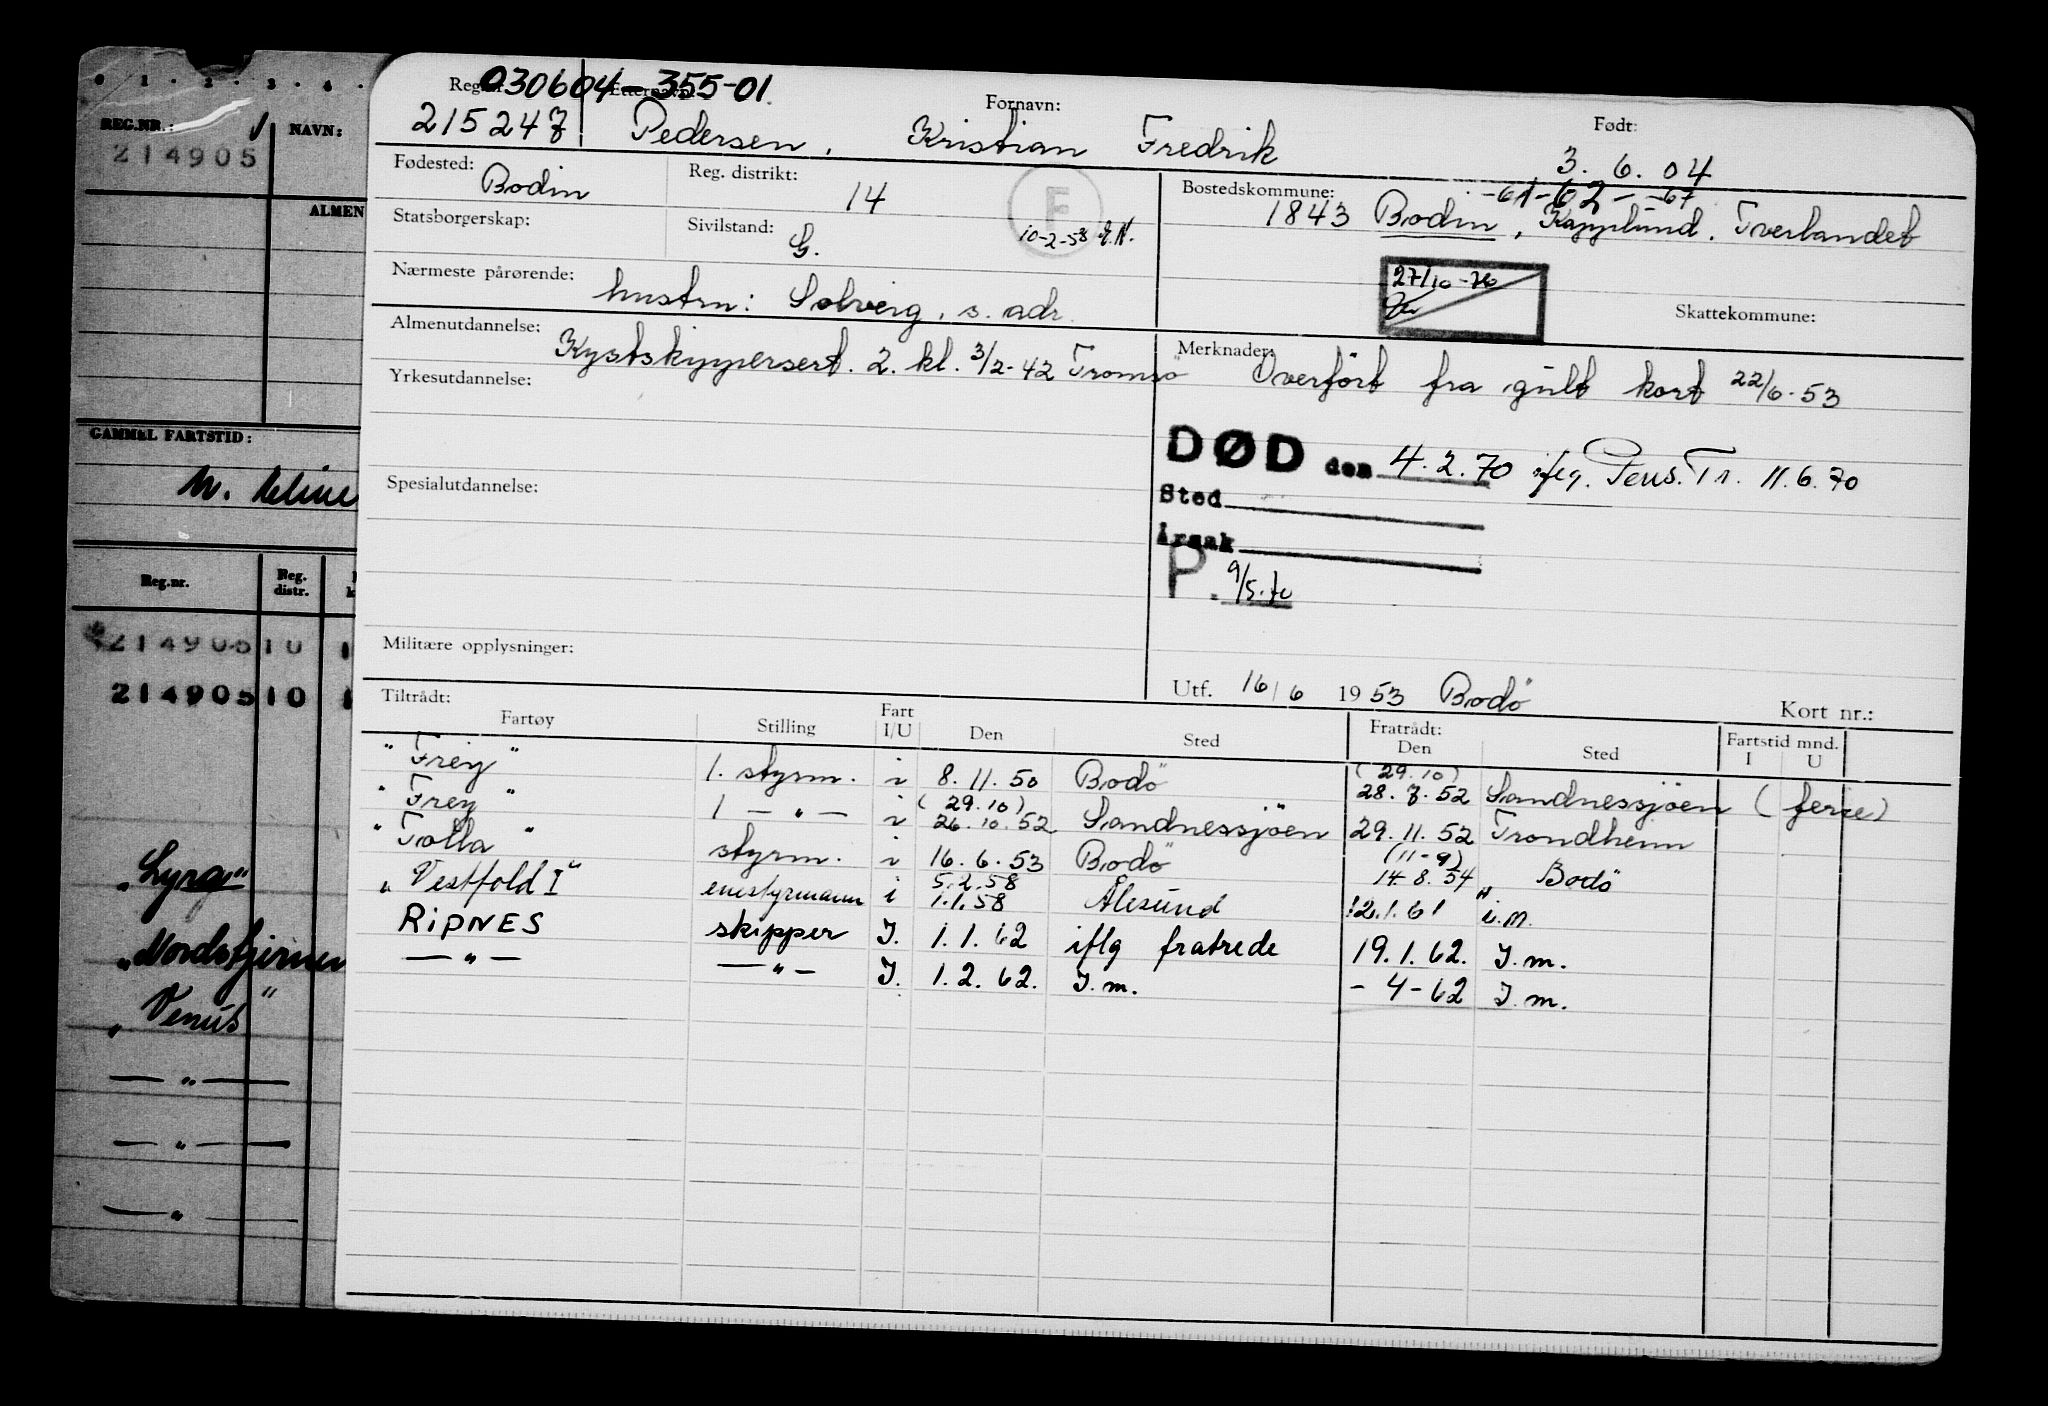 0 1 . 2 . 3 . 4 .
REG.NR.: NAVN:
214905
ALMEN
GAMMEL FARTSTID:
Reg.nr. Reg. distr.
214905 10 1
214905 10 1
"Lyra"
"Nordstjernen
"Venus"
— " —
— " —
— " —
030604-355-01
Reg. Etternavn: Fornavn: Født:
215247 Pedersen, Kristian Fredrik 3. 6. 04
Fødested: Bodin Reg. distrikt: 14 Bostedskommune: -61-62- -67
1843 Bodin, Kapplund. Tverlandet
Statsborgerskap: Sivilstand: G. F 10-2-58
Nærmeste pårørende: hustru: Solveig, s. adr.
27/10-70
Skattekommune:
Almenutdannelse: Kystskippersert. 2. kl. 3/2-42 Tromsö
Merknader: Overfört fra gult kort 22/6-53
Yrkesutdannelse:
DØD den 4.2.70 ifлg. Pens.Tr. 11.6.70
Spesialutdannelse:
Sted
Årsak
P. 9/5.70
Militære opplysninger:
Utf. 16/6 1953 Bodö Kort nr.:
Tiltrådt: Fratrådt: Fartstid mnd.
Fartøy Stilling Fart I/U Den Sted Den Sted I U
"Frey" 1. styrm. i 8.11.50 Bodö (29.10) 28.7.52 Sandnessjöen (ferie)
"Frey" 1 — " — i (29.10) 26.10.52 Sandnessjöen 29.11.52 Trondheim
"Tolla" styrm. i 16.6.53 Bodö (11-9) 14.8.54 Bodö
"Vestfold I" enestyrmann i 5.2.58 1.1.58 Ålesund 12.1.61 i.m.
RIPNES skipper I. 1.1.62 iflg fratrede 19.1.62. I.m.
— " — — " — I. 1.2.62. I.m. - 4-62 I.m.